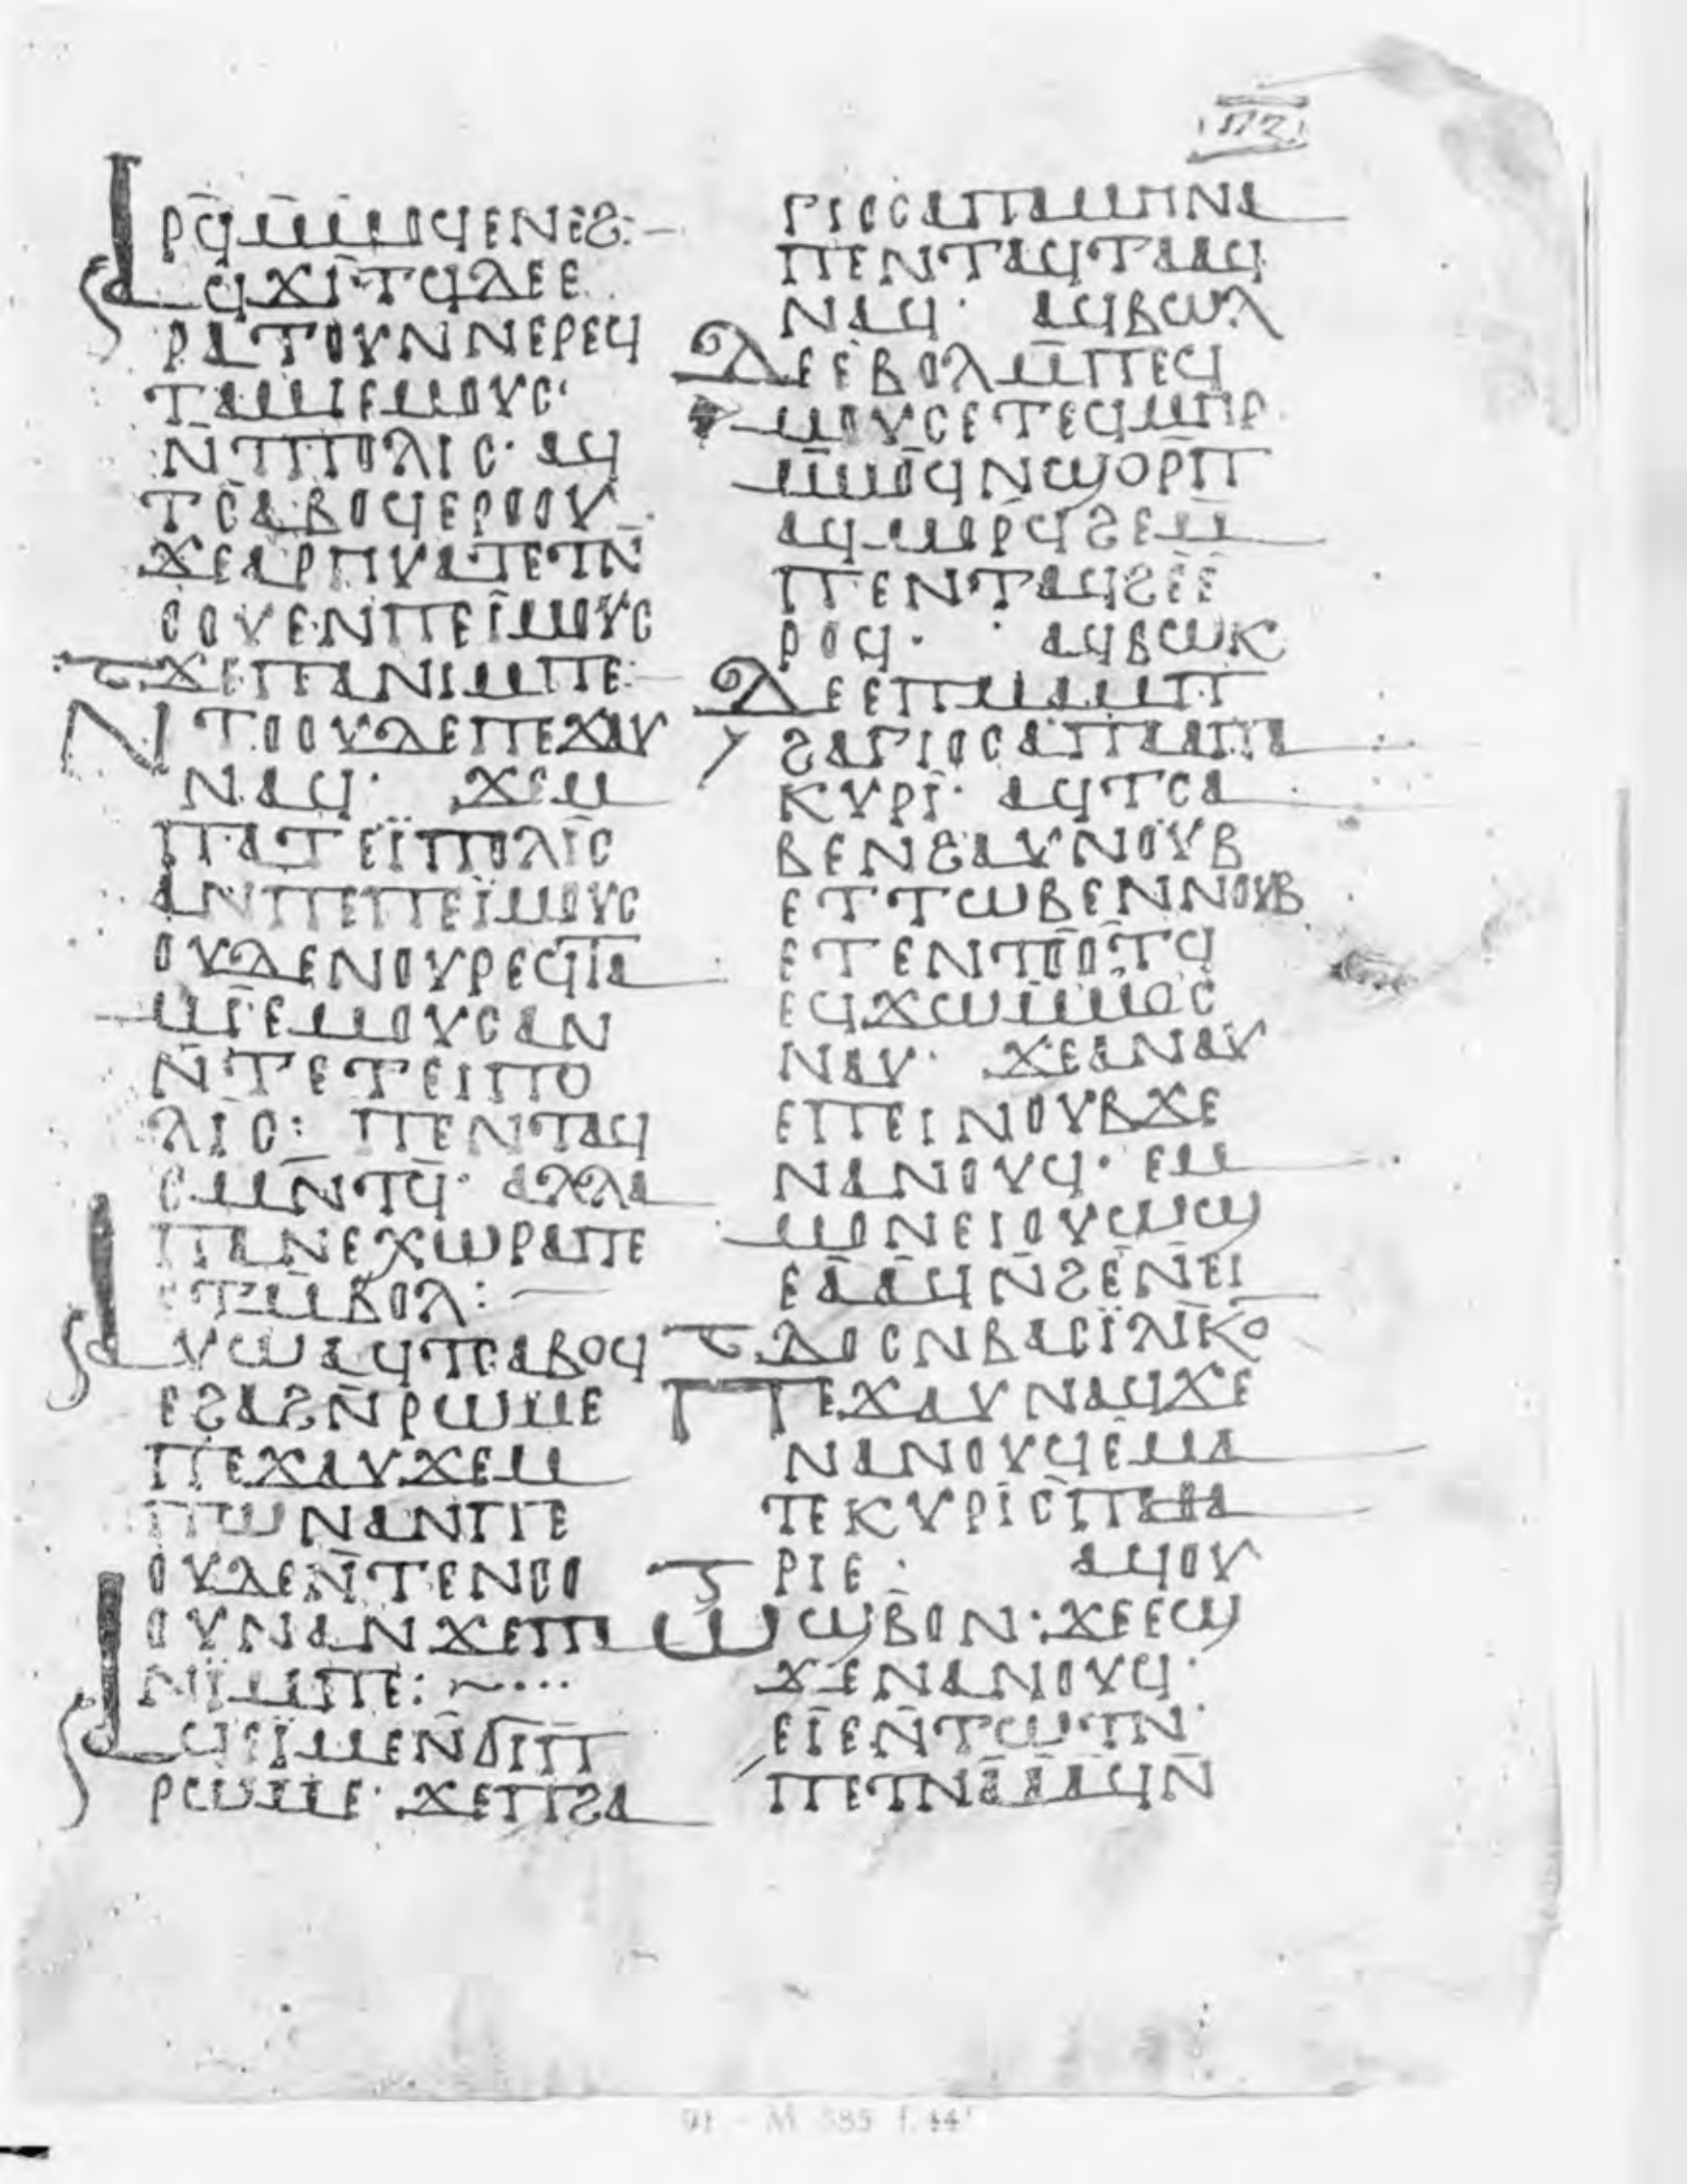 ⲡⲍ
ⲣϥⲙⲙⲟϥⲉⲛⲉϩ:–
ⲁϥϫⲓⲧϥⲇⲉⲉ
ⲣⲁⲧⲟⲩⲛⲛⲉⲣⲉϥ
ⲧⲁⲙⲓⲉⲙⲟⲩⲥ·
ⲛ̄ⲧⲡⲟⲗⲓⲥ· ⲁϥ
ⲧⲥⲁⲃⲟϥⲉⲣⲟⲟⲩ
ϫⲉⲁⲣⲏⲩⲁⲧⲉⲧⲛ̄
ⲥⲟⲩⲉⲛⲡⲉⲓ̈ⲙⲟⲩⲥ
ϫⲉⲡⲁⲛⲓⲙⲡⲉ:–
ⲛⲧⲟⲟⲩⲇⲉⲡⲉϫⲁⲩ
ⲛⲁϥ· ϫⲉⲙ
ⲡⲁⲧⲉⲓ̈ⲡⲟⲗⲓⲥ
ⲁⲛⲡⲉⲡⲉⲓ̈ⲙⲟⲩⲥ
ⲟⲩⲇⲉⲛⲟⲩⲣⲉϥⲧⲁ
ⲙⲓⲉⲙⲟⲩⲥⲁⲛ
ⲛ̄ⲧⲉⲧⲉⲓⲡⲟ
ⲗⲓⲥ: ⲡⲉⲛⲧⲁϥ
ⲥⲙⲛ̄ⲧϥ· ⲁⲗⲗⲁ
ⲡⲁⲛⲉⲭⲱⲣⲁⲡⲉ
ⲉⲧⲙ̄ⲃⲟⲗ:–
ⲁⲩⲱⲁϥⲧⲥⲁⲃⲟϥ
ⲉϩⲁϩⲛ̄ⲣⲱⲙⲉ
ⲡⲉϫⲁⲩϫⲉⲙ
ⲡⲱⲛⲁⲛⲡⲉ
ⲟⲩⲇⲉⲛ̄ⲧⲉⲛⲥⲟ
ⲟⲩⲛⲁⲛϫⲉⲡⲁ
ⲛⲓ̈ⲙⲡⲉ: ~···
ⲁϥⲉⲓ̈ⲙⲉⲛ̄ϭⲓⲡ
ⲣⲱⲙⲉ· ϫⲉⲡϩⲁ
ⲅⲓⲟⲥⲁⲡⲁⲙⲏⲛⲁ
ⲡⲉⲛⲧⲁϥⲧⲁⲁϥ
ⲛⲁϥ· ⲁϥⲃⲱⲗ
ⲇⲉⲉⲃⲟⲗⲙⲡⲉϥ
ⲙⲟⲩⲥⲉⲧⲉϥⲙⲏⲣ
ⲙ̄ⲙⲟϥⲛϣⲟⲣⲡ
ⲁϥⲙⲟⲣϥϩⲉⲙ
ⲡⲉⲛⲧⲁϥϩⲉⲉ
ⲣⲟϥ· ⲁϥⲃⲱⲕ
ⲇⲉⲉⲡⲙⲁⲙⲡ
ϩⲁⲅⲓⲟⲥⲁⲡⲁⲁⲡⲁ
ⲕⲩⲣⲓ̈· ⲁϥⲧⲥⲁ
ⲃⲉⲛϩⲁⲩⲛⲟⲩⲃ
ⲉⲧⲧⲱⲃⲉⲛⲛⲟⲩⲃ
ⲉⲧⲉⲛⲧⲟⲟⲧϥ
ⲉϥϫⲱⲙ̄ⲙⲟⲥ
ⲛⲁⲩ· ϫⲉⲁⲛⲁⲩ
ⲉⲡⲉⲓⲛⲟⲩⲃϫⲉ
ⲛⲁⲛⲟⲩϥ· ⲉⲙ
ⲙⲟⲛⲉⲓⲟⲩⲱϣ
ⲉⲁⲁϥⲛ̄ϩⲉⲛⲉⲓ
ⲇⲟⲥⲛⲃⲁⲥⲓ̈ⲗⲓⲕⲟ
ⲡⲉϫⲁⲩⲛⲁϥϫⲉ
ⲛⲁⲛⲟⲩϥⲉⲙⲁ
ⲧⲉⲕⲩⲣⲓⲥⲡⲁⲡⲁ
ⲣⲓⲉ· ⲁϥⲟⲩ
ⲱϣⲃⲟⲛ·ϫⲉⲉϣ
ϫⲉⲛⲁⲛⲟⲩϥ·
ⲉⲓⲉⲛ̄ⲧⲱⲧⲛ
ⲡⲉⲧⲛⲁⲁⲁϥⲛ̄
91 - M 585 f. 44ʳ